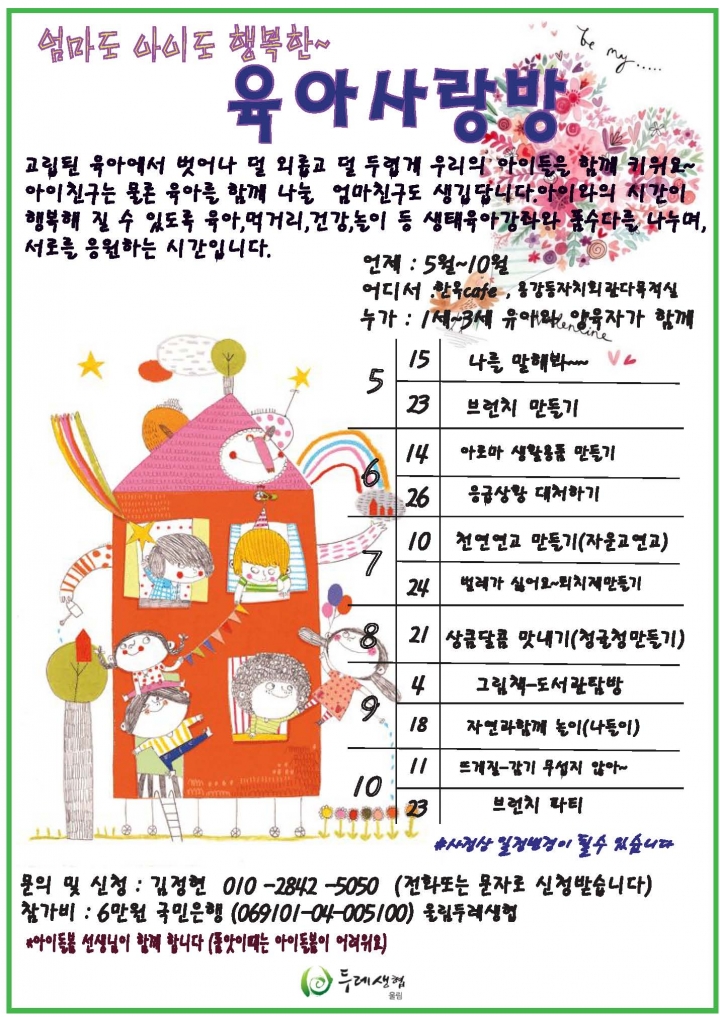 엄마도 아이도 행복한~
be my.....
육아사랑방
고립된 육아에서 벗어나 덜 외롭고 덜 두렵게 우리의 아이들을 함께 키워요~
아이친구는 물론 육아를 함께 나눌 엄마친구도 생깁답니다.아이와의 시간이
행복해 질 수 있도록 육아,먹거리,건강,놀이 등 생태육아강좌와 품수다를 나누며,
서로를 응원하는 시간입니다.
언제 : 5월~10월
어디서 :한우cafe , 용강동자치회관다목적실
누가 : 1세~3세 유아와 양육자가 함께
5 15 나를 말해봐~~
23 브런치 만들기
6 14 아로마 생활용품 만들기
26 응급상황 대처하기
7 10 천연연고 만들기(자운고연고)
24 벌레가 싫어요~퇴치제만들기
8 21 상큼달콤 맛내기(청귤청만들기)
9 4 그림책-도서관탐방
18 자연과함께 놀이(나들이)
10 11 뜨게질-감기 무섭지 않아~
23 브런치 파티
#사정상 일정변경이 될수 있습니다
문의 및 신청 : 김정현 010 -2842 -5050 (전화또는 문자로 신청받습니다)
참가비 : 6만원 국민은행 (069101-04-005100) 울림두레생협
*아이돌봄 선생님이 함께 합니다 (품앗이때는 아이돌봄이 어려워요)
두레생협
울림